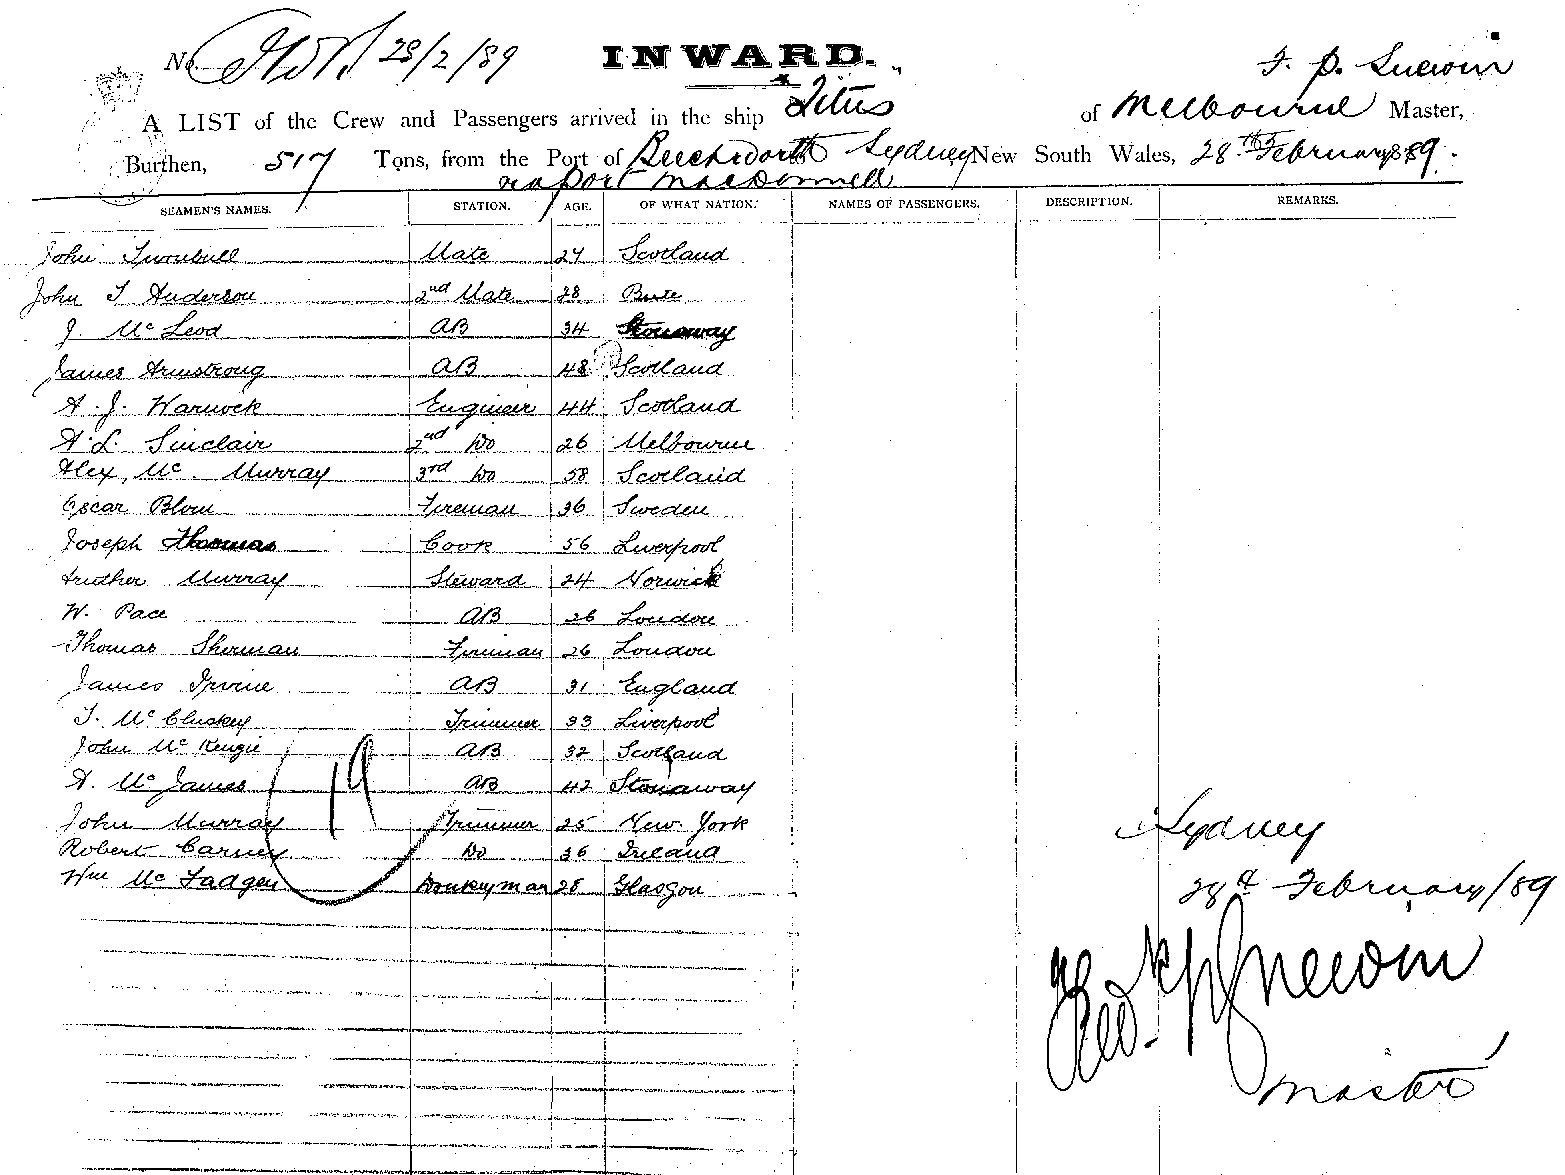 No. 28/2/89 INWARD.
F. P. Snewin
A LIST of the Crew and Passengers arrived in the ship Titus of Melbourne Master,
Burthen, 517 Tons, from the Port of Beechworth Sydney New South Wales, 28th February 1889.
via Port MacDonnell
SEAMEN'S NAMES. STATION. AGE. OF WHAT NATION. NAMES OF PASSENGERS. DESCRIPTION. REMARKS.
John Turnbull Mate 27 Scotland
John T Anderson 2nd Mate 28 Bute
J. McLeod AB 34 Stonaway
James Armstrong AB 48 Scotland
A. J. Warnock Engineer 44 Scotland
A. L. Sinclair 2nd Do 26 Melbourne
Alex. Mc Murray 3rd Do 58 Scotland
Oscar Blom Fireman 36 Sweden
Joseph Thomas Cook 56 Liverpool
Murray Steward 24 Norwich
W. Pace AB 26 London
Thomas Sherman Fireman 26 London
James Irvine AB 31 England
T. McCluskey Trimmer 33 Liverpool
John McKenzie AB 32 Scotland
A. McJames AB 42 Stonaway
John Murray Trimmer 25 New York
Robert Carney Do 36 Ireland
Wm McFadgen Donkeyman 28 Glasgow
19
Sydney
28th February/89
Snewin
Master